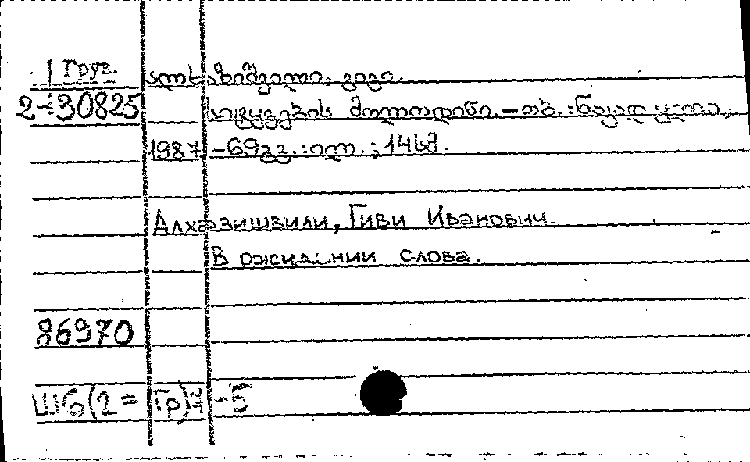 1 Груз. ალხაზიშვილი, გივი.
2-30825 სიტყვების მოლოდინი. – თბ. : ნაკადული,
1987 – 69გვ. : ილ. ; 14სმ.
Алхазишвили, Гиви Иванович.
В ожидании слова.
86970
Ш6(2=Гр)7 – 5